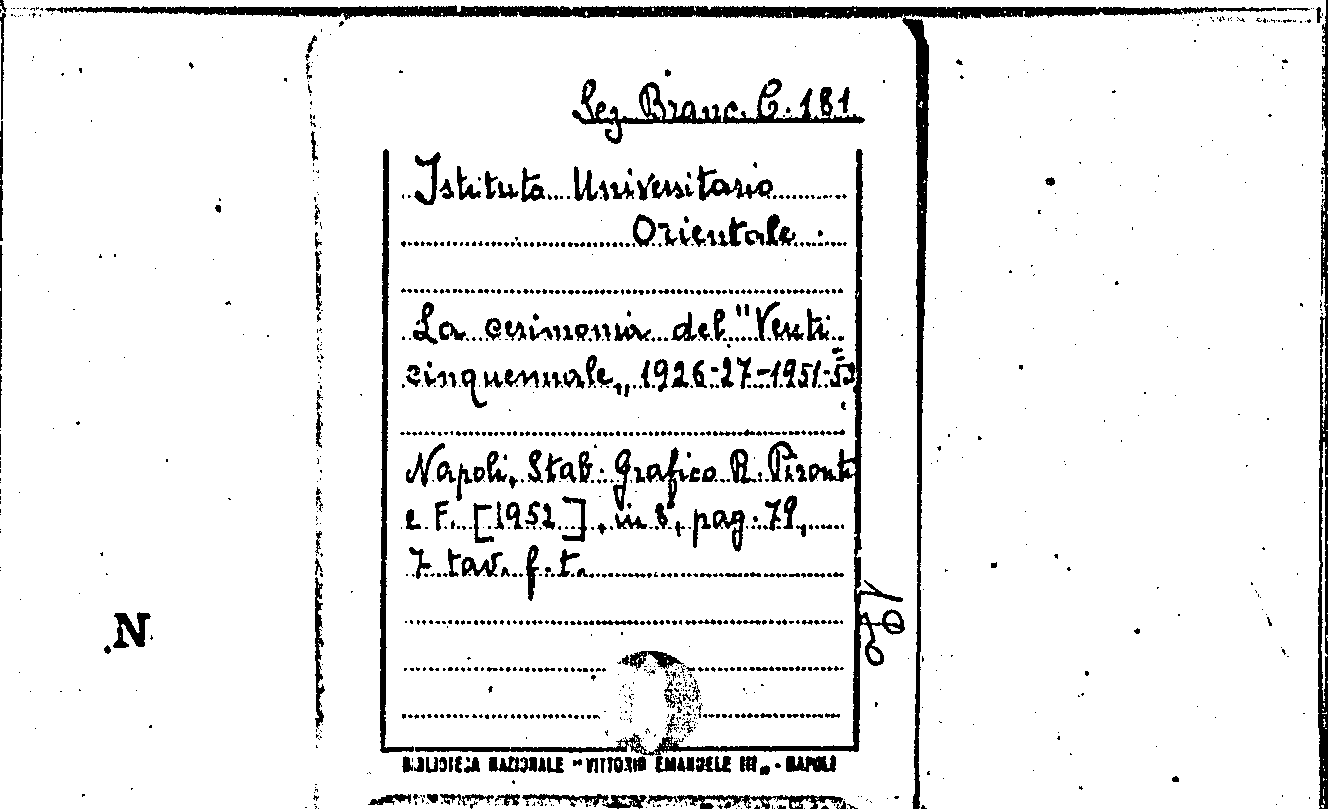 Sez. Branc. C. 181
Istituto Universitario
Orientale.
La cerimonia del "Venti
cinquennale„ 1926-27-1951-52
Napoli, Stab. Grafico R. Pironti
e F. [1952], in 8°, pag. 79,
7 tav. f. t.
N
BIBLIOTECA NAZIONALE "VITTORIO EMANUELE III„ - NAPOLI